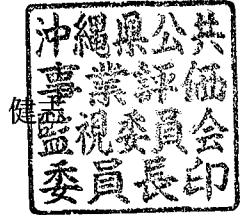 沖縄県公共
事業評価
健
監視委員会
委員長印